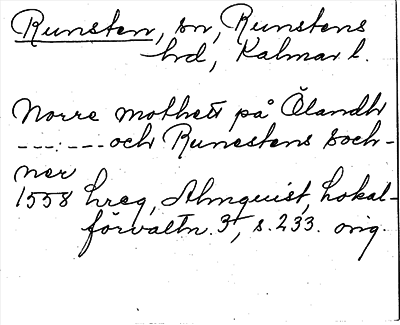 Runsten, sn, Runstens
hd, Kalmar l.
Norre mothett på Ölandh
---:--- och Runestens soch-
ner
1558 hreg, Almquist, Lokal-
förvaltn. 3, s. 233. orig.